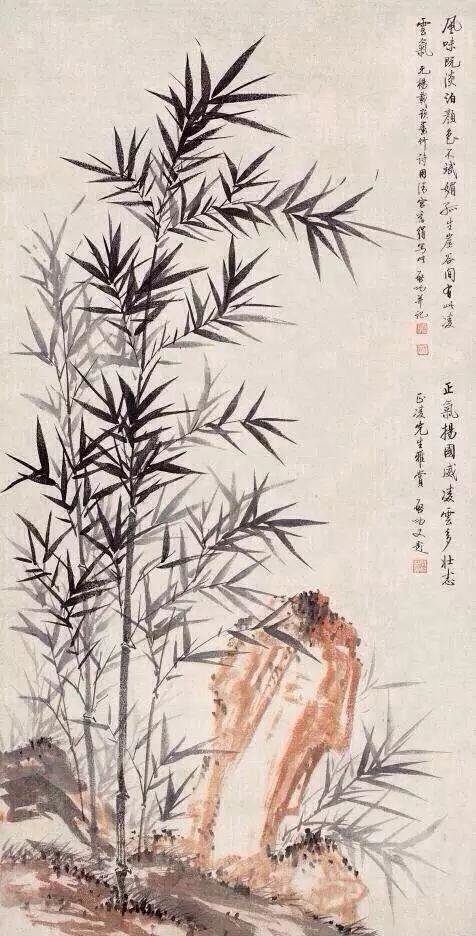 風味既淡泊顏色不斌媚孤生崖谷間有此凌
雲氣 元楊載題墨竹詩用清宮舊絹寫此 啟功並記
正氣揚國威凌雲多壯志
正凌先生雅賞 啟功又題